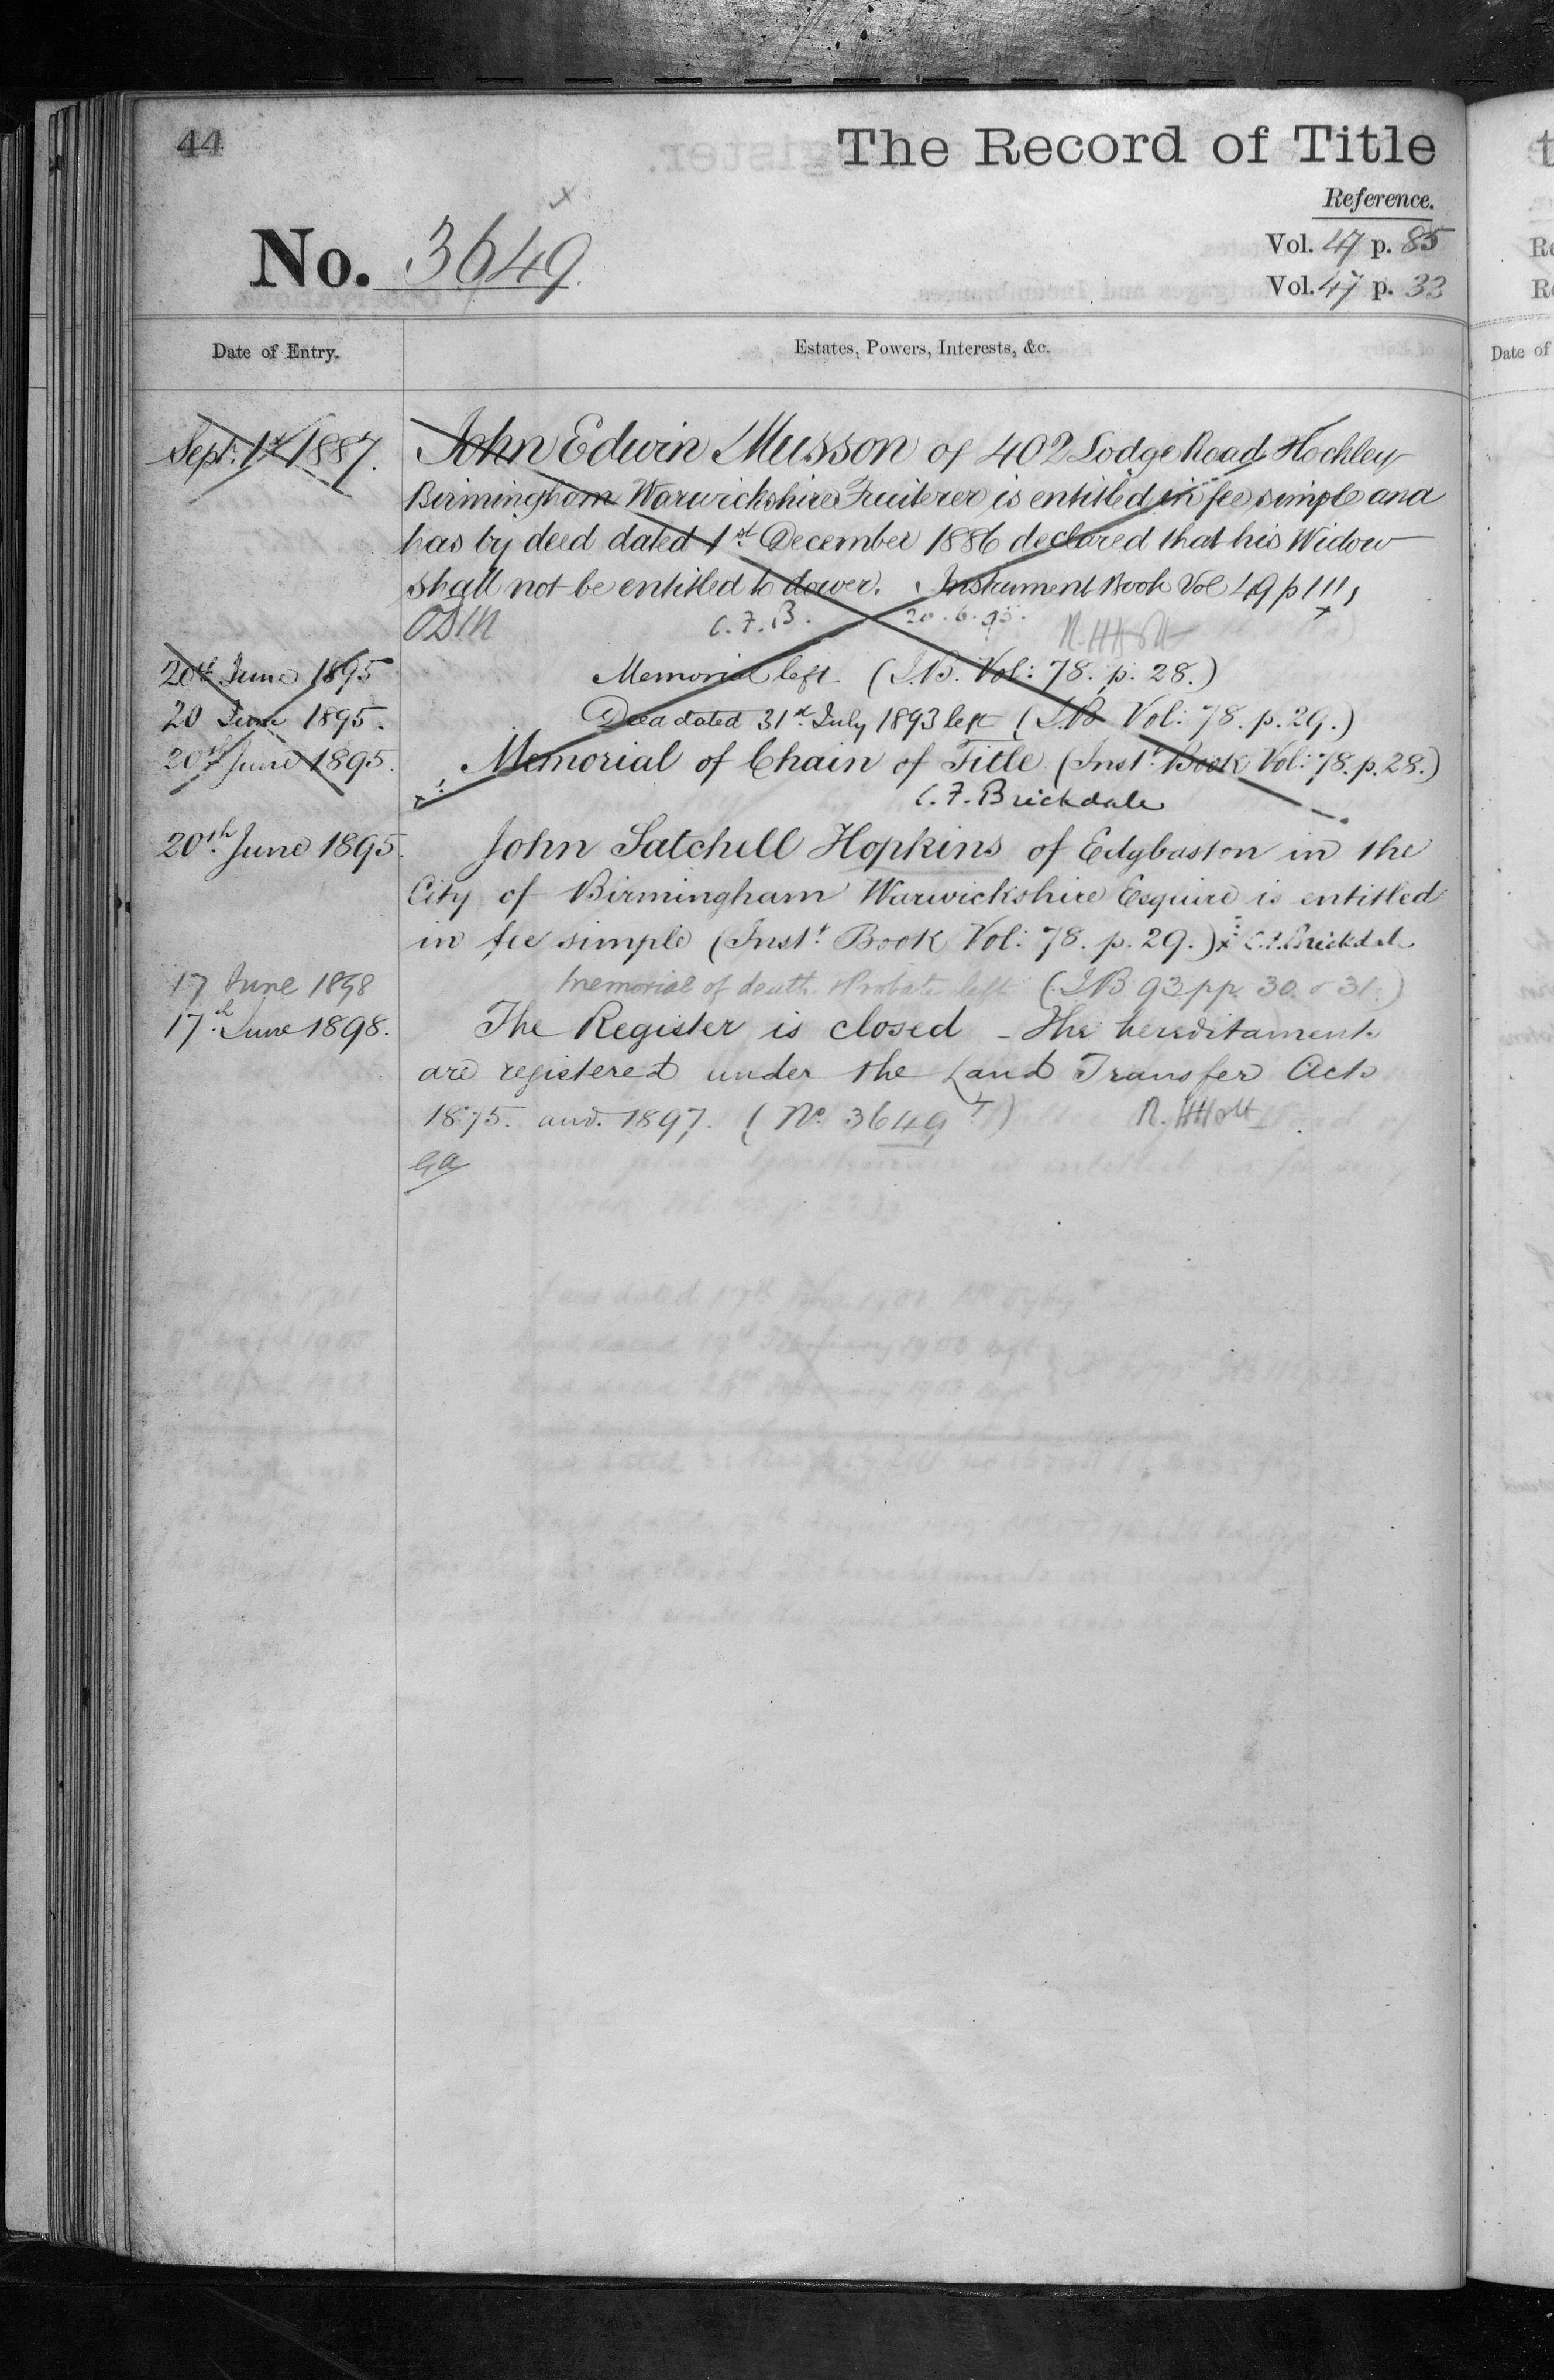 44
The Record of Title
Reference.
No. 3649.
Vol. 47 p. 85
Vol. 47 p. 33
Date of Entry.
Estates, Powers, Interests, &c.
Sept: 1st 1887.
John Edwin Musson of 402 Lodge Road Hockley
Birmingham Warwickshire Fruiterer is entitled in fee simple and
has by deed dated 1st December 1886 declared that his Widow
shall not be entitled to dower. Instrument Book Vol 49 p 111
C.F.B. 20.6.95.
20th June 1895
Memorial left. (I.B. Vol: 78. p. 28.)
20 June 1895.
Deed dated 31st July 1893 left (I.B Vol: 78. p. 29.)
20th June 1895.
Memorial of Chain of Title (Instt. Book Vol: 78. p. 28.)
C.F. Brickdale
20th June 1895.
John Satchell Hopkins of Edgbaston in the
City of Birmingham Warwickshire Esquire is entitled
in fee simple (Instt. Book Vol: 78. p. 29.) C.F. Brickdale
17 June 1898
Memorial of death & Probate left (I B 93 pp. 30. & 31.)
17th June 1898.
The Register is closed - The hereditaments
are registered under the Land Transfer Acts
1875. and 1897. (No. 3649 T) R.H Holt
Date of